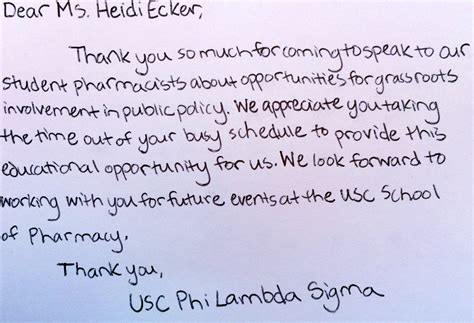 Dear Ms. Heidi Ecker,
Thank you so much for coming to speak to our
student pharmacists about opportunities for grassroots
involvement in public policy. We appreciate you taking
the time out of your busy schedule to provide this
educational opportunity for us. We look forward to
working with you for future events at the USC School
of Pharmacy.
Thank you,
USC Phi Lambda Sigma